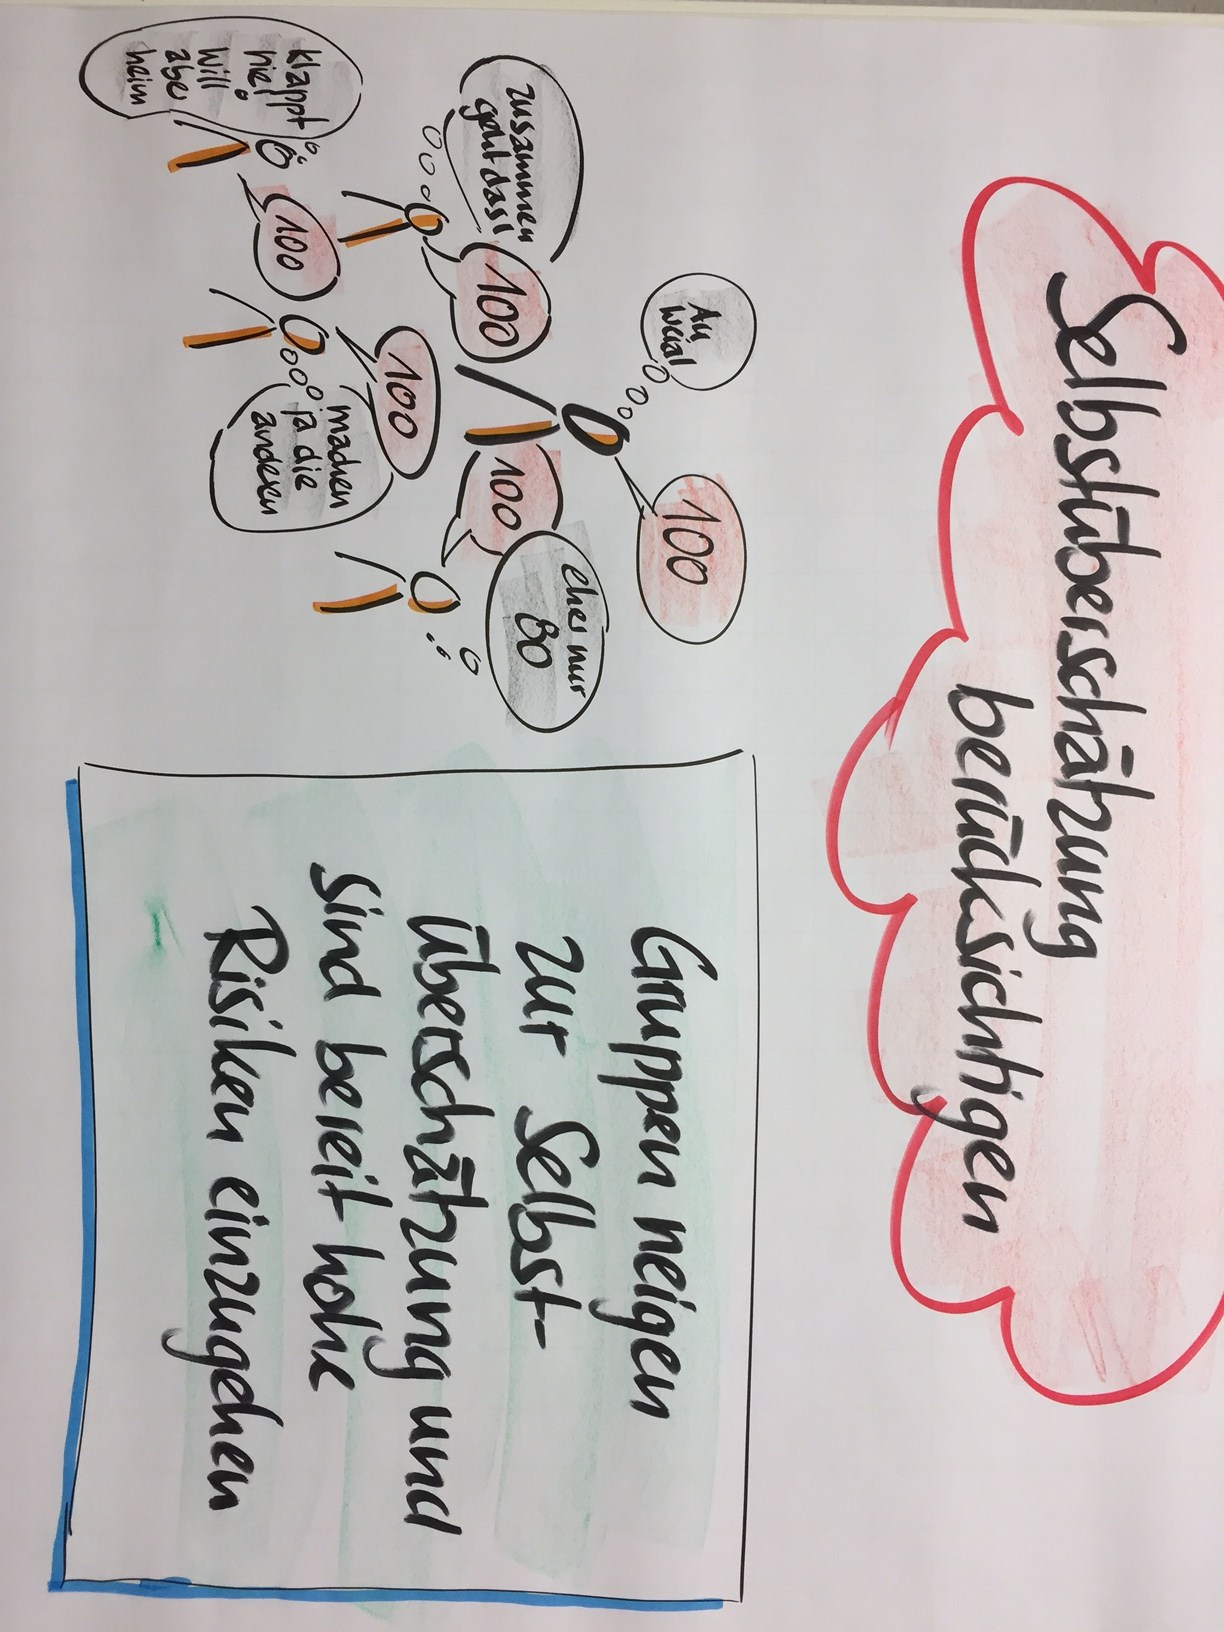 Selbstüberschätzung
berücksichtigen
Au
weia!
100
zusammen
geht das!
100
100
eher nur
80
100
klappt
nie!
Will
aber
heim
100
machen
ja die
anderen
Gruppen neigen
zur Selbst-
überschätzung und
sind bereit hohe
Risiken einzugehen